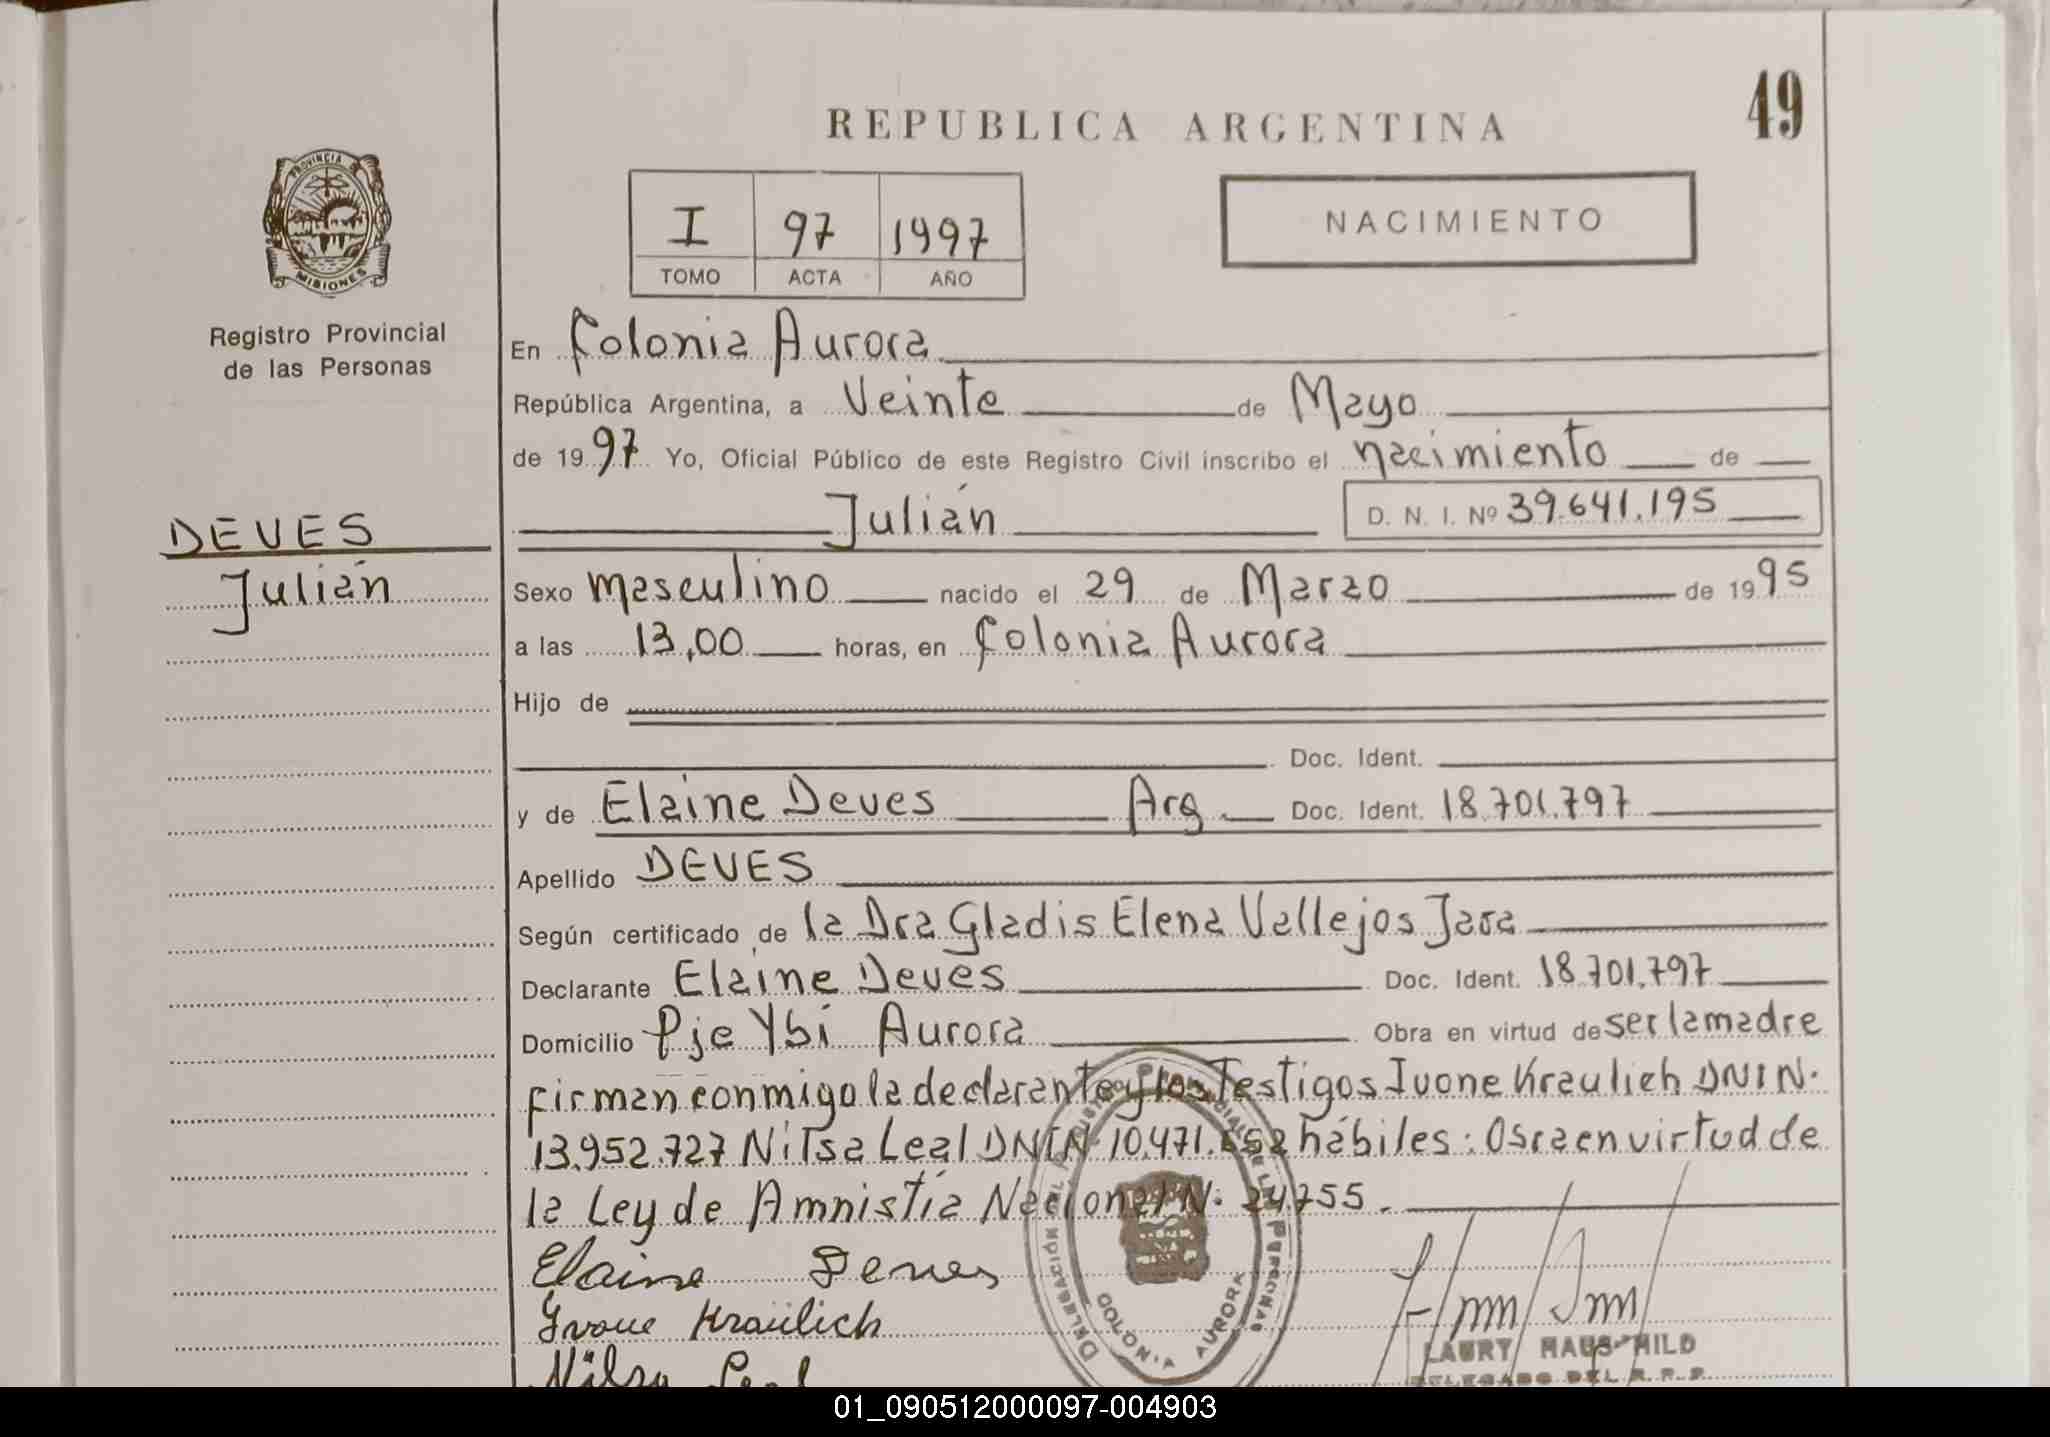 49
REPUBLICA ARGENTINA
PROVINCIA DE
MISIONES
Registro Provincial
de las Personas
I 97 1997
TOMO ACTA AÑO
NACIMIENTO
En Colonia Aurora
República Argentina, a Veinte de Mayo
de 1997 Yo, Oficial Público de este Registro Civil inscribo el nacimiento de
Julián D. N. I. Nº 39.641.195
DEVES
Julián
Sexo masculino nacido el 29 de Marzo de 1995
a las 13,00 horas, en Colonia Aurora
Hijo de
Doc. Ident.
y de Elaine Deves Arg. Doc. Ident. 18.701.797
Apellido DEVES
Según certificado de la Dra Gladis Elena Vallejos Jara
Declarante Elaine Deves Doc. Ident. 18.701.797
Domicilio Pje Ybi Aurora Obra en virtud de ser la madre
firman conmigo la declarante y los Testigos Ivone Kraulich DNI N.
13.952.727 Nilsa Leal DNI N. 10.471.652 hábiles: Obra en virtud de
la Ley de Amnistía Nacional N. 24.755.
Elaine Deves
Ivone Kraülich
Nilsa Leal
DELEGACIÓN DEL REGISTRO PROVINCIAL DE LAS PERSONAS
COLONIA AURORA
LAURY HAUS HILD
DELEGADO DEL R.P.P.
01_090512000097-004903